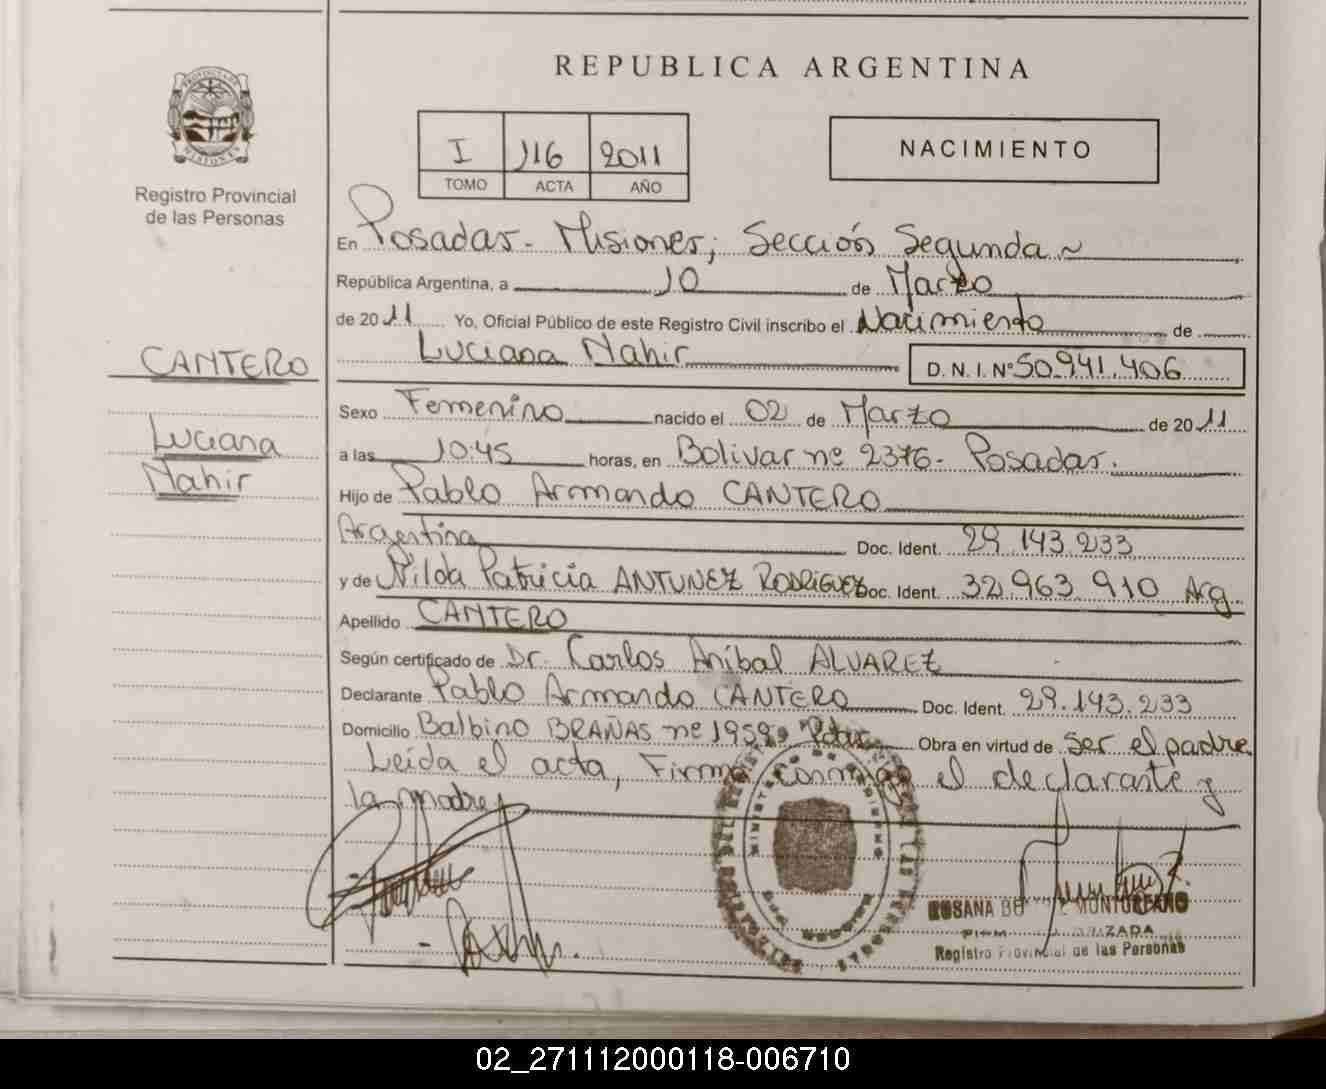 REPUBLICA ARGENTINA
I 116 2011
TOMO ACTA AÑO
NACIMIENTO
Registro Provincial
de las Personas
CANTERO
Luciana
Nahir
En Posadas - Misiones; Sección Segunda ~
República Argentina, a 10 de Marzo
de 2011 Yo, Oficial Público de este Registro Civil inscribo el Nacimiento de
Luciana Nahir D. N. I. Nº 50.941.406
Sexo Femenino nacido el 02 de Marzo de 2011
a las 10:45 horas, en Bolivar nº 2376 - Posadas.
Hijo de Pablo Armando CANTERO
Argentina Doc. Ident. 29.143.233
y de Nilda Patricia ANTUNEZ RODRIGUEZ Doc. Ident. 32.963.910 Arg.
Apellido CANTERO
Según certificado de Dr. Carlos Aníbal ALVAREZ
Declarante Pablo Armando CANTERO Doc. Ident. 29.143.233
Domicilio Balbino BRAÑAS nº 1959 Obra en virtud de ser el padre
Leída el acta, Firma conmigo el declarante y
la madre
ROSANA
Registro Provincial de las Personas
02_271112000118-006710